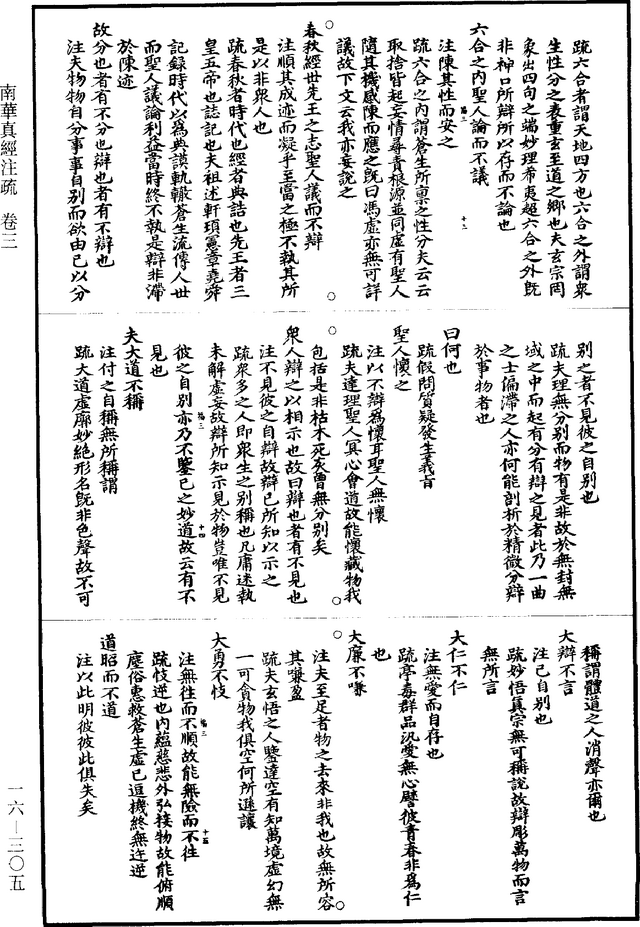 南華真經注疏　卷三
疏六合者謂天地四方也六合之外謂衆
生性分之表重玄至道之鄉也夫玄宗罔
象出四句之端妙理希夷超六合之外既
非神口所辯所以存而不論也
六合之內聖人論而不議
注陳其性而安之
疏六合之內謂蒼生所稟之性分夫云云
取捨皆起妄情尋責根源並同虛有聖人
隨其機感陳而應之既曰馮虛亦無可詳
議故下文云我亦妄說之
春秋經世先王之志聖人議而不辯
注順其成迹而凝乎至當之極不執其所
是以非衆人也
疏春秋者時代也經者典誥也先王者三
皇五帝也誌記也夫祖述軒頊憲章堯舜
記録時代以爲典謨軌轍蒼生流傳人世
而聖人議論利益當時終不執是辯非滯
於陳迹
故分也者有不分也辯也者有不辯也
注夫物物自分事事自别而欲由己以分
别之者不見彼之自别也
疏夫理無分别而物有是非故於無封無
域之中而起有分有辯之見者此乃一曲
之士偏滯之人亦何能剖析於精微分辯
於事物者也
曰何也
疏假問質疑發生義旨
聖人懷之
注以不辯爲懷耳聖人無懷
疏夫達理聖人冥心會道故能懷藏物我
包括是非枯木死灰曾無分别矣
衆人辯之以相示也故曰辯也者有不見也
注不見彼之自辯故辯己所知以示之
疏衆多之人即衆生之别稱也凡庸迷執
未解虛妄故辯所知示見於物豈唯不見
彼之自别亦乃不鑒己之妙道故云有不
見也
夫大道不稱
注付之自稱無所稱謂
疏大道虛廓妙絶形名既非色聲故不可
稱謂體道之人消聲亦爾也
大辯不言
注已自别也
疏妙悟真宗無可稱說故辯彫萬物而言
無所言
大仁不仁
注無愛而自存也
疏亭毒群品汎愛無心譬彼青春非爲仁
也
大廉不嗛
注夫至足者物之去來非我也故無所容
其嗛盈
疏夫玄悟之人鑒達空有知萬境虛幻無
一可貪物我俱空何所遜讓
大勇不忮
注無往而不順故能無險而不往
疏忮逆也內蘊慈悲外弘接物故能俯順
塵俗惠救蒼生虛己逗機終無迕逆
道昭而不道
注以此明彼彼此俱失矣
一六—三〇五